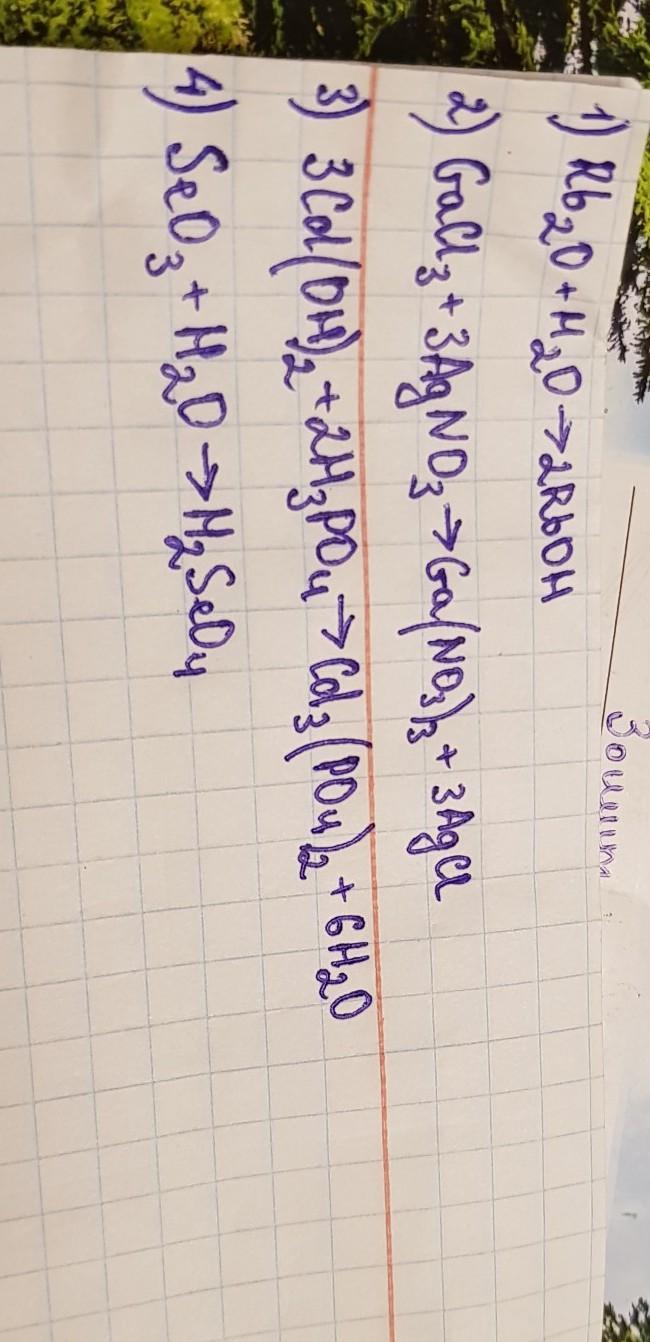 1) Rb₂O + H₂O → 2RbOH
2) GaCl₃ + 3AgNO₃ → Ga(NO₃)₃ + 3AgCl
3) 3Cd(OH)₂ + 2H₃PO₄ → Cd₃(PO₄)₂ + 6H₂O
4) SeO₃ + H₂O → H₂SeO₄